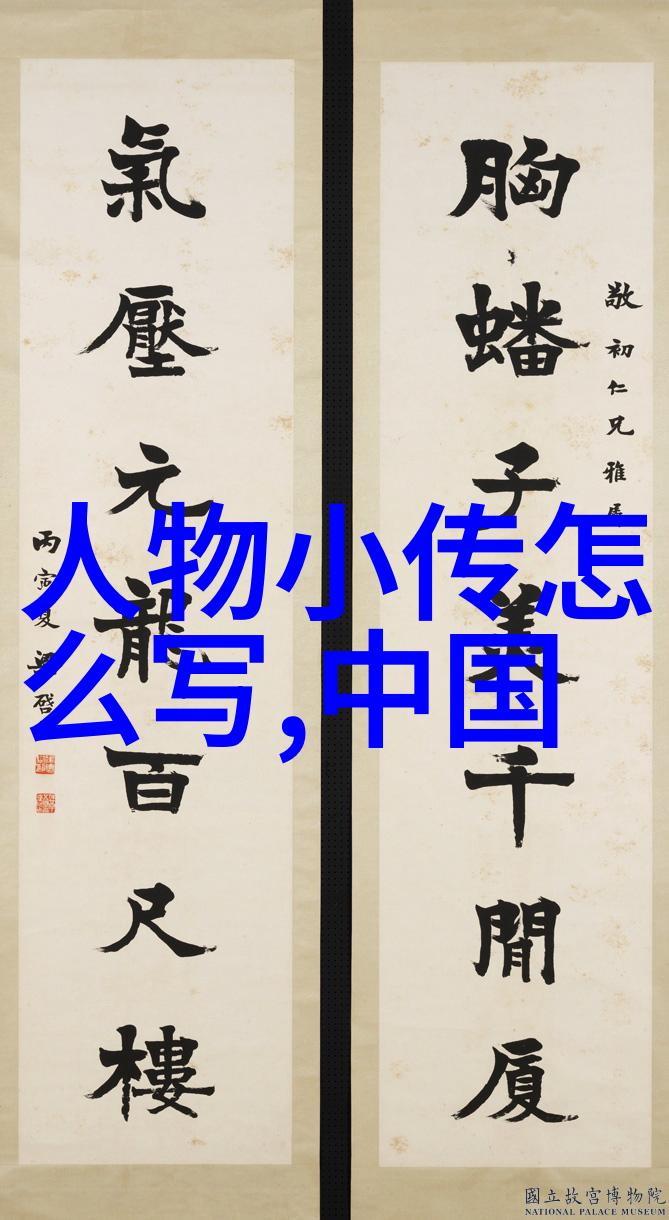 胸蟠子美千閒厦
敬初仁兄雅
氣壓元龍百尺樓
丙寅夏 梁啓
人物小传怎
么写,中国
國立故宮博物院
NATIONAL PALACE MUSEUM